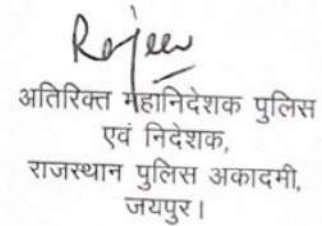 Rajeev
अतिरिक्त महानिदेशक पुलिस
एवं निदेशक,
राजस्थान पुलिस अकादमी,
जयपुर।